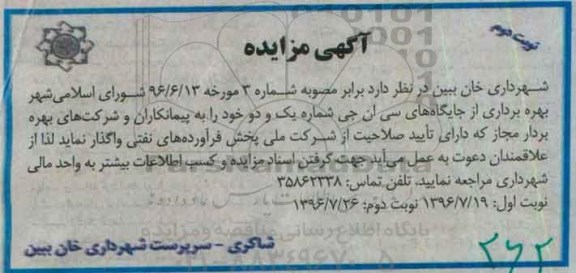 نوبت دوم
آگهی مزایده
شهرداری خان ببین در نظر دارد برابر مصوبه شماره ۳ مورخه ۹۶/۶/۱۳ شورای اسلامی شهر
بهره برداری از جایگاه‌های سی ان جی شماره یک و دو خود را به پیمانکاران و شرکت‌های بهره
بردار مجاز که دارای تأیید صلاحیت از شرکت ملی پخش فرآورده‌های نفتی واگذار نماید لذا از
علاقمندان دعوت به عمل می‌آید جهت گرفتن اسناد مزایده و کسب اطلاعات بیشتر به واحد مالی
شهرداری مراجعه نمایید. تلفن تماس: ۳۵۸۶۲۳۳۸
نوبت اول: ۱۳۹۶/۷/۱۹ نوبت دوم: ۱۳۹۶/۷/۲۶
پایگاه اطلاع رسانی مناقصه و مزایده
شاکری - سرپرست شهرداری خان ببین
۲۶۲